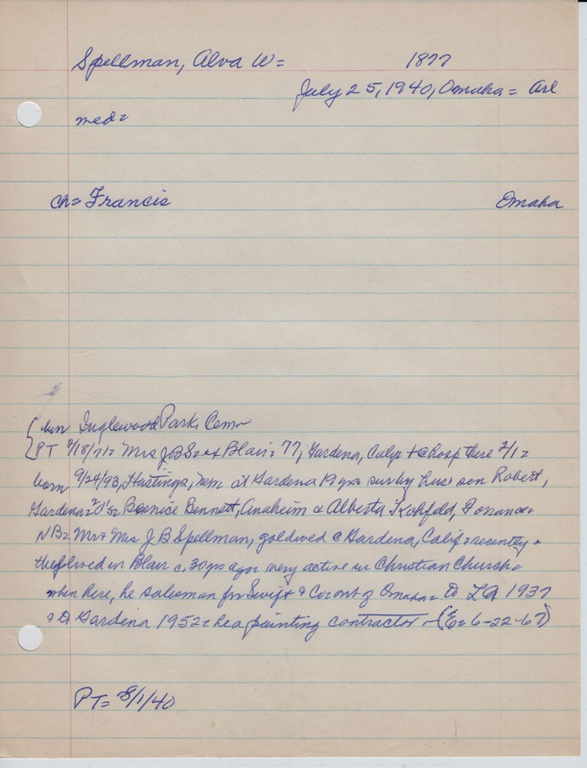 Spellman, Alva W= 1877
July 25, 1940, Omaha = Arl
med=
ch= Francis Omaha
bur Inglewood Park Cem
PT 2/18/71= Mrs J B S= ex Blair= 77, Gardena, Calif + @ hosp there 2/1=
born 9/24/93, Hastings, rem at Gardena 19 yrs surv by hus= son Robert,
Gardena= 2 d's= Bernice Bennett, Anaheim & Alberta Torrance=
NB= Mr + Mrs J B Spellman, gold wed @ Gardena, Calif= recently=
they lived in Blair c. 30 yrs ago= very active in Christian Church=
when here, he salesman for Swift & Co= out of Omaha= to LA 1937
+ to Gardena 1952= he a painting contractor - (E= 6-22-67)
PT= 8/1/40